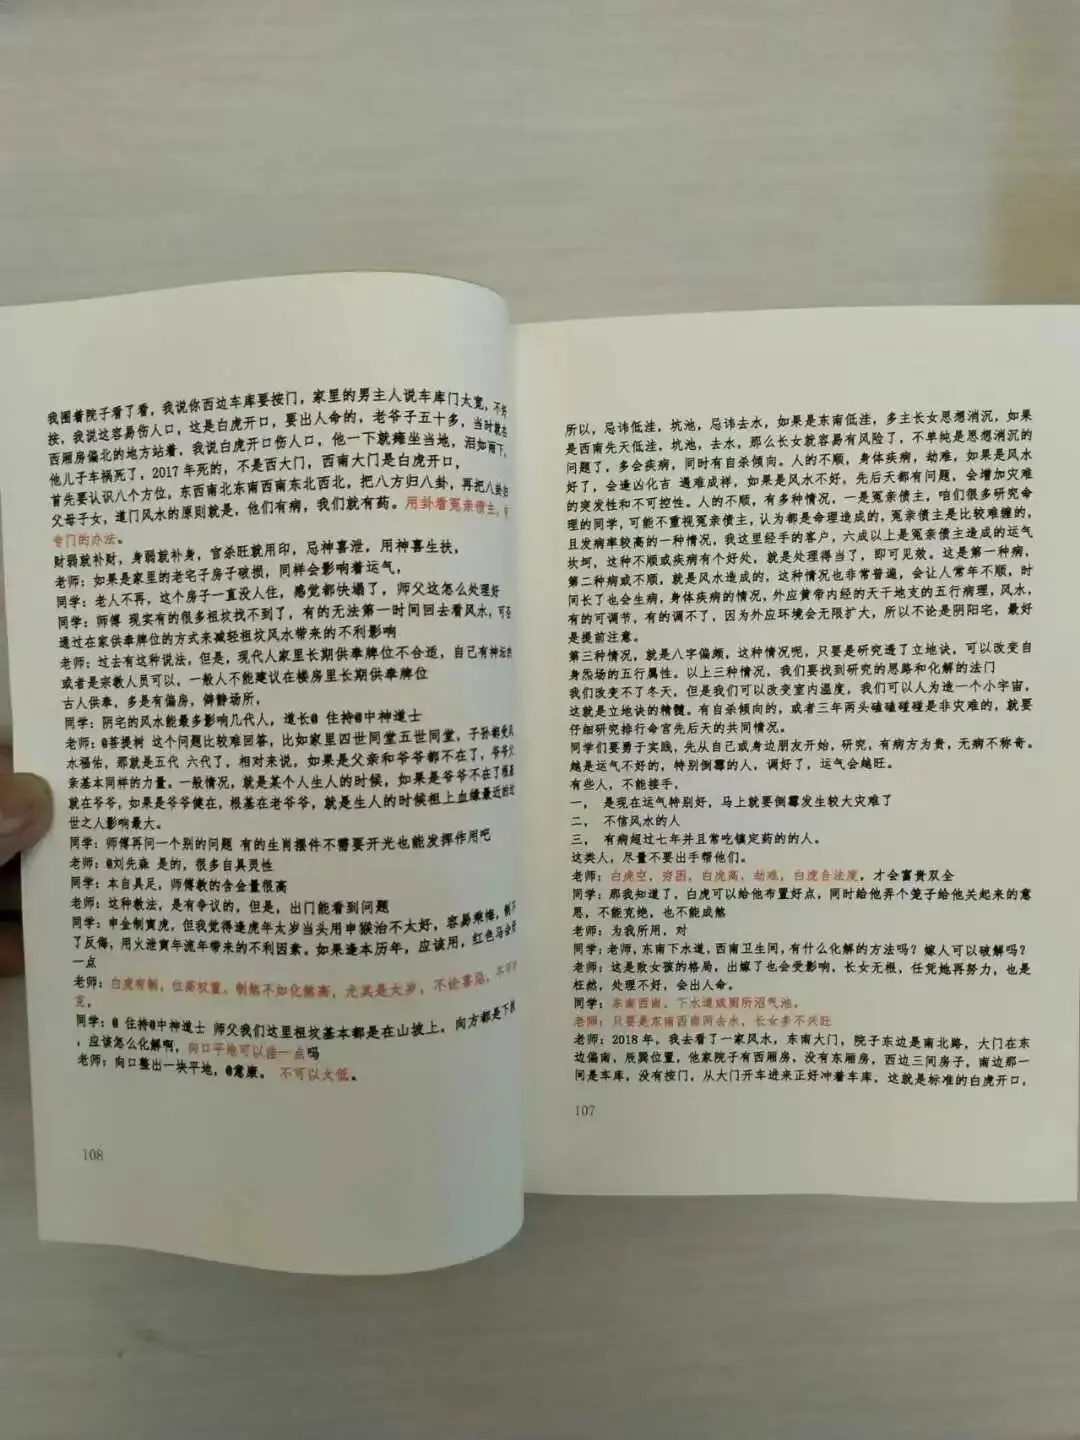 所以，忌讳低洼，坑池，忌讳去水，如果是东南低洼，多主长女思想消沉，如果
是西南先天低洼，坑池，去水，那么长女就容易有风险了，不单纯是思想消沉的
问题了，多会疾病，同时有自杀倾向。人的不顺，身体疾病，劫难，如果是风水
好了，会逢凶化吉 遇难成祥，如果是风水不好，先后天都有问题，会增加灾难
的突发性和不可控性。人的不顺，有多种情况，一是冤亲债主，咱们很多研究命
理的同学，可能不重视冤亲债主，认为都是命理造成的，冤亲债主是比较难缠的，
且发病率较高的一种情况，我这里经手的客户，六成以上是冤亲债主造成的运气
坎坷，这种不顺或疾病有个好处，就是处理得当了，即可见效。这是第一种病，
第二种病或不顺，就是风水造成的，这种情况也非常普遍，会让人常年不顺，时
间长了也会生病，身体疾病的情况，外应黄帝内经的天干地支的五行病理，风水，
有的可调节，有的调不了，因为外应环境会无限扩大，所以不论是阴阳宅，最好
是提前注意。
第三种情况，就是八字偏颇，这种情况呢，只要是研究透了立地诀，可以改变自
身炁场的五行属性。以上三种情况，我们要找到研究的思路和化解的法门
我们改变不了冬天，但是我们可以改变室内温度，我们可以人为造一个小宇宙，
这就是立地诀的精髓。有自杀倾向的，或者三年两头磕磕碰碰是非灾难的，就要
仔细研究排行命宫先后天的共同情况。
同学们要勇于实践，先从自己或身边朋友开始，研究，有病方为贵，无病不称奇。
越是运气不好的，特别倒霉的人，调好了，运气会越旺。
有些人，不能接手，
一， 是现在运气特别好，马上就要倒霉发生较大灾难了
二， 不信风水的人
三， 有病超过七年并且常吃镇定药的的人。
这类人，尽量不要出手帮他们。
老师：白虎空，穷困，白虎高，劫难，白虎合法度，才会富贵双全
同学：那我知道了，白虎可以给他布置好点，同时给他弄个笼子给他关起来的意
思，不能克绝，也不能成煞
老师：为我所用，对
同学：老师，东南下水道，西南卫生间，有什么化解的方法吗？嫁人可以破解吗？
老师：这是败女孩的格局，出嫁了也会受影响，长女无根，任凭她再努力，也是
枉然，处理不好，会出人命。
同学：东南西南，下水道或厕所沼气池。
老师：只要是东南西南两去水，长女多不兴旺
老师：2018年，我去看了一家风水，东南大门，院子东边是南北路，大门在东
边偏南，辰巽位置，他家院子有西厢房，没有东厢房，西边三间房子，南边那一
间是车库，没有按门，从大门开车进来正好冲着车库，这就是标准的白虎开口，
107
我围着院子看了看，我说你西边车库要按门，家里的男主人说车库门太宽，不好
按，我说这容易伤人口，这是白虎开口，要出人命的，老爷子五十多，当时就在
西厢房偏北的地方站着，我说白虎开口伤人口，他一下就瘫坐当地，泪如雨下，
他儿子车祸死了，2017年死的，不是西大门，西南大门是白虎开口，
首先要认识八个方位，东西南北东南西南东北西北，把八方归八卦，再把八卦归
父母子女，道门风水的原则就是，他们有病，我们就有药。用卦看冤亲债主，
专门的办法。
财弱就补财，身弱就补身，官杀旺就用印，忌神喜泄，用神喜生扶，
老师：如果是家里的老宅子房子破损，同样会影响着运气，
同学：老人不再，这个房子一直没人住，感觉都快塌了，师父这怎么处理好
同学：师傅 现实有的很多祖坟找不到了，有的无法第一时间回去看风水，可否
通过在家供奉牌位的方式来减轻祖坟风水带来的不利影响
老师：过去有这种说法，但是，现代人家里长期供奉牌位不合适，自己有神坛的
或者是宗教人员可以，一般人不能建议在楼房里长期供奉牌位
古人供奉，多是有偏房，僻静场所，
同学：阴宅的风水能最多影响几代人，道长@ 住持@中神道士
老师：@菩提树 这个问题比较难回答，比如家里四世同堂五世同堂，子孙都受风
水福佑，那就是五代 六代了，相对来说，如果是父亲和爷爷都不在了，爷爷父
亲基本同样的力量。一般情况，就是某个人生人的时候，如果是爷爷不在了根基
就在爷爷，如果是爷爷健在，根基在老爷爷，就是生人的时候祖上血缘最近的过
世之人影响最大。
同学：师傅再问一个别的问题 有的生肖摆件不需要开光也能发挥作用吧
老师：@刘先森 是的，很多自具灵性
同学：本自具足，师傅教的含金量很高
老师：这种教法，是有争议的，但是，出门能看到问题
同学：申金制寅虎，但我觉得逢虎年太岁当头用申猴治不太好，容易乘悔，制不
了反侮，用火泄寅年流年带来的不利因素。如果逢本历年，应该用，红色马会好
一点
老师：白虎有制，位高权重。制煞不如化煞高，尤其是太岁，不论喜忌，不可
克。
同学：@ 住持@中神道士 师父我们这里祖坟基本都是在山坡上，向方都是下
，应该怎么化解啊，向口平地可以洼一点吗
老师：向口整出一块平地，@意康。 不可以太低。
108